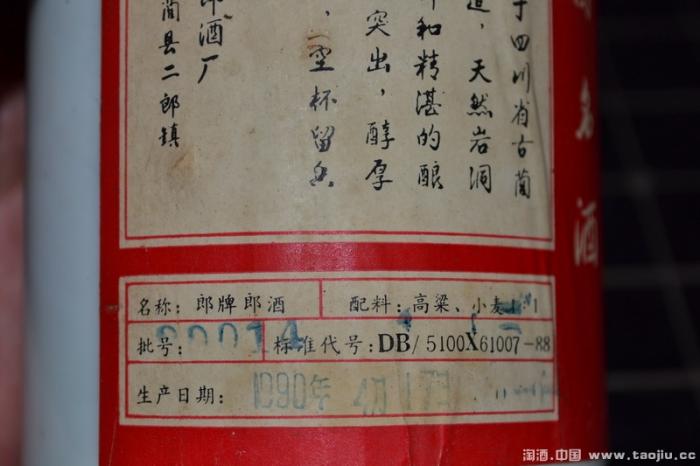 名酒
于四川省古蔺
天然岩洞
和精湛的酿
突出，醇厚
空杯留香
郎酒厂
蔺县二郎镇
名称：郎牌郎酒
配料：高粱、小麦
批号：
标准代号：DB/5100X61007-88
生产日期：1990年4月17日
淘酒.中国 www.taojiu.cc